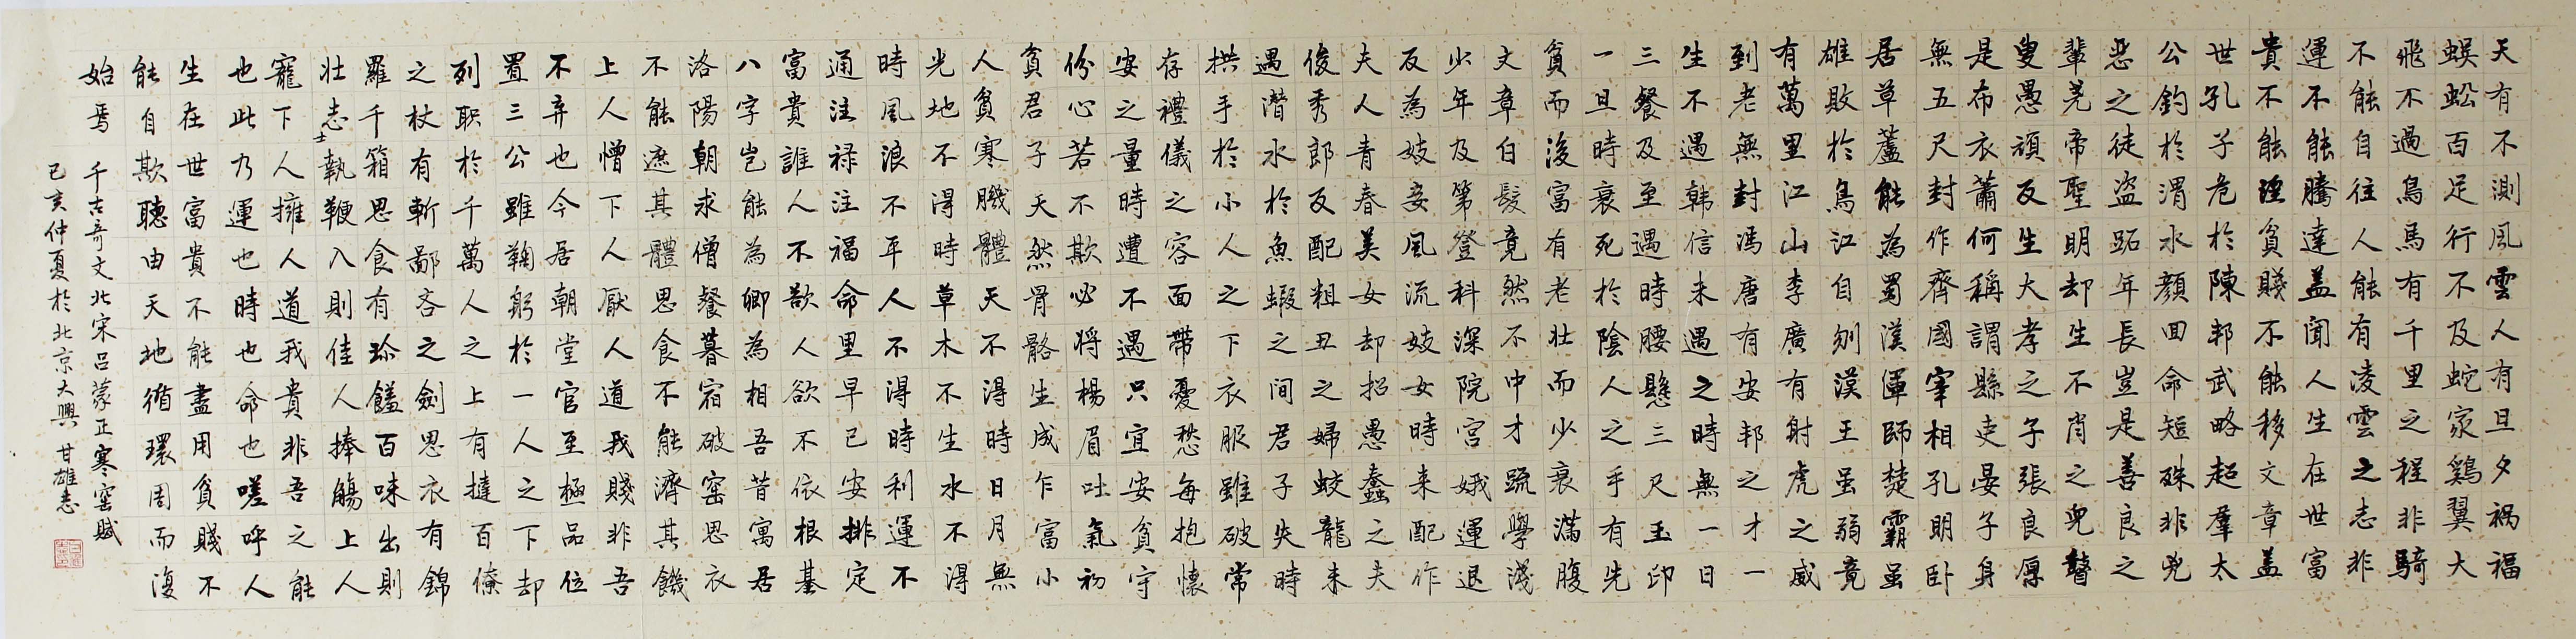 天有不測風雲人有旦夕禍福
蜈蚣百足行不及蛇家鷄翼大
飛不過鳥馬有千里之程非騎
不能自往人能有凌雲之志非
運不能騰達盖聞人生在世富
貴不能淫貧賤不能移文章盖
世孔子危於陳邦武略超羣太
公釣於渭水顏回命短殊非兇
惡之徒盗跖年長豈是善良之
輩尧帝聖明却生不肖之兒瞽
叟愚頑反生大孝之子張良原
是布衣蕭何稱謂縣吏晏子身
無五尺封作齊國宰相孔明卧
居草蘆能為蜀漢軍師楚霸虽
雄敗於烏江自刎漢王虽弱竟
有萬里江山李廣有射虎之威
到老無封馮唐有安邦之才一
生不遇韩信未遇之時無一日
三餐及至遇時腰懸三尺玉印
一旦時衰死於陰人之手有先
貧而後富有老壯而少衰滿腹
文章白髮竟然不中才疏學淺
少年及第登科深院宮娥運退
反為妓妾風流妓女時来配作
夫人青春美女却招愚蠢之夫
俊秀郎反配粗丑之婦蛟龍未
遇潛水於魚蝦之間君子失時
拱手於小人之下衣服雖破常
存禮儀之容面帶憂愁每抱懷
安之量時遭不遇只宜安貧守
份心若不欺必將楊眉吐氣初
貧君子天然骨骼生成乍富小
人貧寒賤體天不得時日月無
光地不得時草木不生水不得
時風浪不平人不得時利運不
通注禄注福命里早已安排定
富貴誰人不欲人欲不依根基
八字岂能為卿為相吾昔寓居
洛陽朝求僧餐暮宿破窑思衣
不能遮其體思食不能濟其饑
上人憎下人厭人道我賤非吾
不弃也今居朝堂官至極品位
置三公雖鞠躬於一人之下却
列职於千萬人之上有撻百僚
之杖有斬鄙吝之劍思衣有錦
羅千箱思食有珍饈百味出則
壯志士執鞭入則佳人捧觴上人
寵下人擁人道我貴非吾之能
也此乃運也時也命也嗟呼人
生在世富貴不能盡用貧賤不
能自欺聽由天地循環周而復
始焉
千古奇文北宋吕蒙正寒窑賦
己亥仲夏於北京大興甘雄志